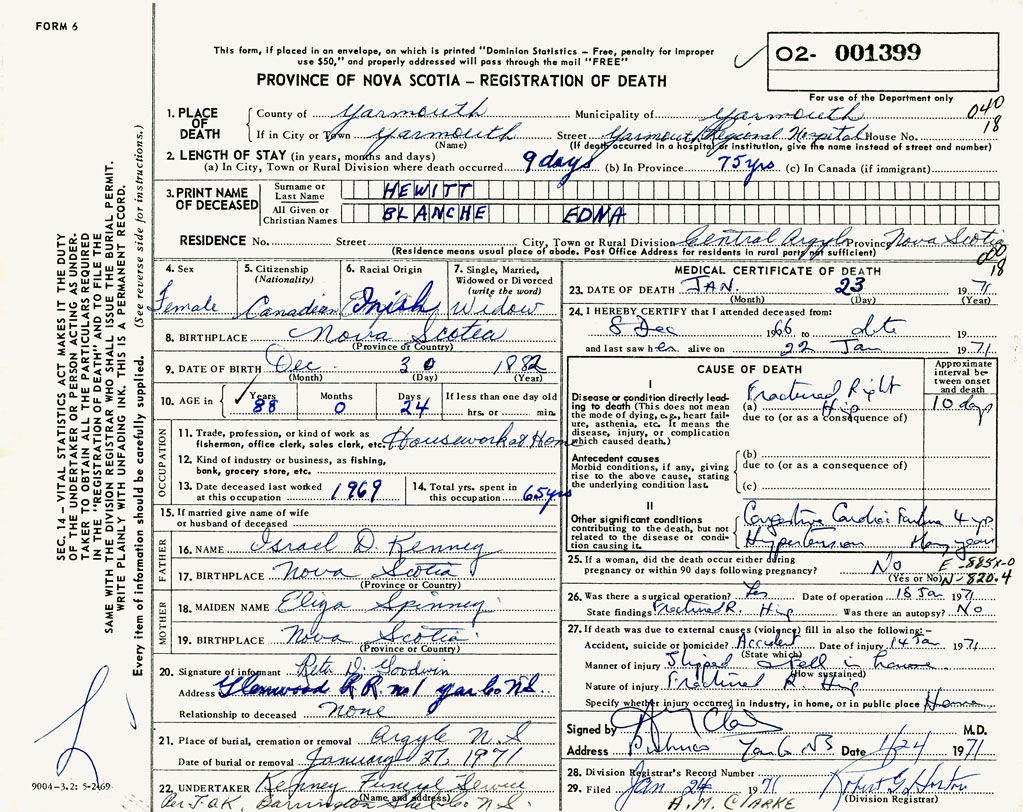 FORM 6
This form, if placed in an envelope, on which is printed "Dominion Statistics – Free, penalty for improper
use $50," and properly addressed will pass through the mail "FREE"
PROVINCE OF NOVA SCOTIA – REGISTRATION OF DEATH
O2- 001399
For use of the Department only
040
18
1. PLACE OF DEATH
County of Yarmouth Municipality of Yarmouth
If in City or Town Yarmouth Street Yarmouth Regional Hospital House No.
(Name) (If death occurred in a hospital or institution, give the name instead of street and number)
2. LENGTH OF STAY (in years, months and days)
(a) In City, Town or Rural Division where death occurred 9 days (b) In Province 75 yrs (c) In Canada (if immigrant)
3. PRINT NAME OF DECEASED
Surname or Last Name HEWITT
All Given or Christian Names BLANCHE EDNA
RESIDENCE No. Street City, Town or Rural Division Central Argyle Province Nova Scotia
(Residence means usual place of abode. Post Office Address for residents in rural parts not sufficient)
000
18
4. Sex
Female
5. Citizenship (Nationality)
Canadian
6. Racial Origin
Irish
7. Single, Married, Widowed or Divorced (write the word)
Widow
8. BIRTHPLACE Nova Scotia
(Province or Country)
9. DATE OF BIRTH Dec 30 1882
(Month) (Day) (Year)
10. AGE in
Years Months Days If less than one day old
88 0 24 hrs. or min.
OCCUPATION
11. Trade, profession, or kind of work as
fishermen, office clerk, sales clerk, etc. Housework at Home
12. Kind of industry or business, as fishing,
bank, grocery store, etc.
13. Date deceased last worked at this occupation 1969
14. Total yrs. spent in this occupation 65 yrs
15. If married give name of wife
or husband of deceased
FATHER
16. NAME Israel D. Kenney
17. BIRTHPLACE Nova Scotia
(Province or Country)
MOTHER
18. MAIDEN NAME Eliza Spinney
19. BIRTHPLACE Nova Scotia
(Province or Country)
20. Signature of informant D. Goodwin
Address Glenwood R.R. no 1 Yar Co N.S.
Relationship to deceased None
21. Place of burial, cremation or removal Argyle N.S
Date of burial or removal January 27, 1971
22. UNDERTAKER Kenney Funeral Service
(Name and address)
Per J.a.K. Barrington N.S.
MEDICAL CERTIFICATE OF DEATH
23. DATE OF DEATH JAN. 23 1971
(Month) (Day) (Year)
24. I HEREBY CERTIFY that I attended deceased from:
8 Dec 1966 to date 19
and last saw her alive on 22 Jan 1971
CAUSE OF DEATH
Approximate interval between onset and death
I
Disease or condition directly leading to death (This does not mean the mode of dying, e.g., heart failure, asthenia, etc. It means the disease, injury, or complication which caused death.)
(a) Fractured Right Hip 10 days
due to (or as a consequence of)
Antecedent causes
Morbid conditions, if any, giving rise to the above cause, stating the underlying condition last.
(b)
due to (or as a consequence of)
(c)
II
Other significant conditions contributing to the death, but not related to the disease or condition causing it.
Congestive Cardiac Failure 4 yrs
Hypertension Many years
25. If a woman, did the death occur either during
pregnancy or within 90 days following pregnancy? No
(Yes or No)
E-885X-0
N-820.4
26. Was there a surgical operation? Yes Date of operation 18 Jan 1971
State findings Fractured R. Hip Was there an autopsy? No
27. If death was due to external causes (violence) fill in also the following:–
Accident, suicide or homicide? Accident Date of injury 14 Jan 1971
(State which)
Manner of injury Slipped & fell in house
(How sustained)
Nature of injury Fractured R Hip
Specify whether injury occurred in industry, in home, or in public place Home
Signed by M.D.
Address Pubnico Yar Co NS Date 1/24 1971
28. Division Registrar's Record Number
29. Filed Jan 24 1971 Robert G. Horton
Division Registrar
A.M. CLARKE
SEC. 14 – VITAL STATISTICS ACT MAKES IT THE DUTY
OF THE UNDERTAKER OR PERSON ACTING AS UNDERTAKER TO OBTAIN ALL THE PARTICULARS REQUIRED
IN THE "REGISTRATION OF DEATH" AND TO FILE THE
SAME WITH THE DIVISION REGISTRAR WHO SHALL ISSUE THE BURIAL PERMIT.
WRITE PLAINLY WITH UNFADING INK. THIS IS A PERMANENT RECORD.
Every item of information should be carefully supplied. (See reverse side for instructions.)
9004-3.2: 5-2-69